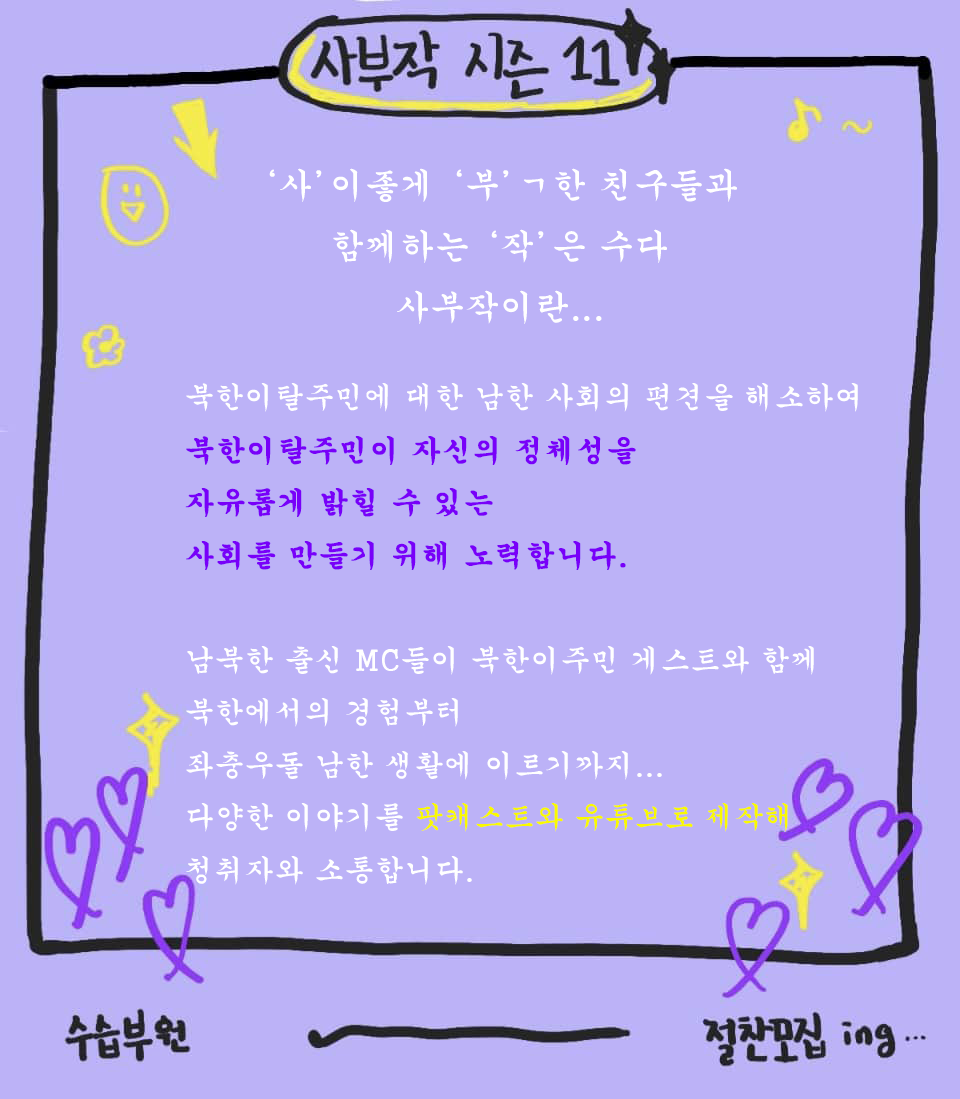 사부작 시즌 11
‘사’이좋게 ‘부’ㄱ한 친구들과
함께하는 ‘작’은 수다
사부작이란...
북한이탈주민에 대한 남한 사회의 편견을 해소하여
북한이탈주민이 자신의 정체성을
자유롭게 밝힐 수 있는
사회를 만들기 위해 노력합니다.
남북한 출신 MC들이 북한이주민 게스트와 함께
북한에서의 경험부터
좌충우돌 남한 생활에 이르기까지...
다양한 이야기를 팟캐스트와 유튜브로 제작해
청취자와 소통합니다.
수습부원 절찬모집 ing...